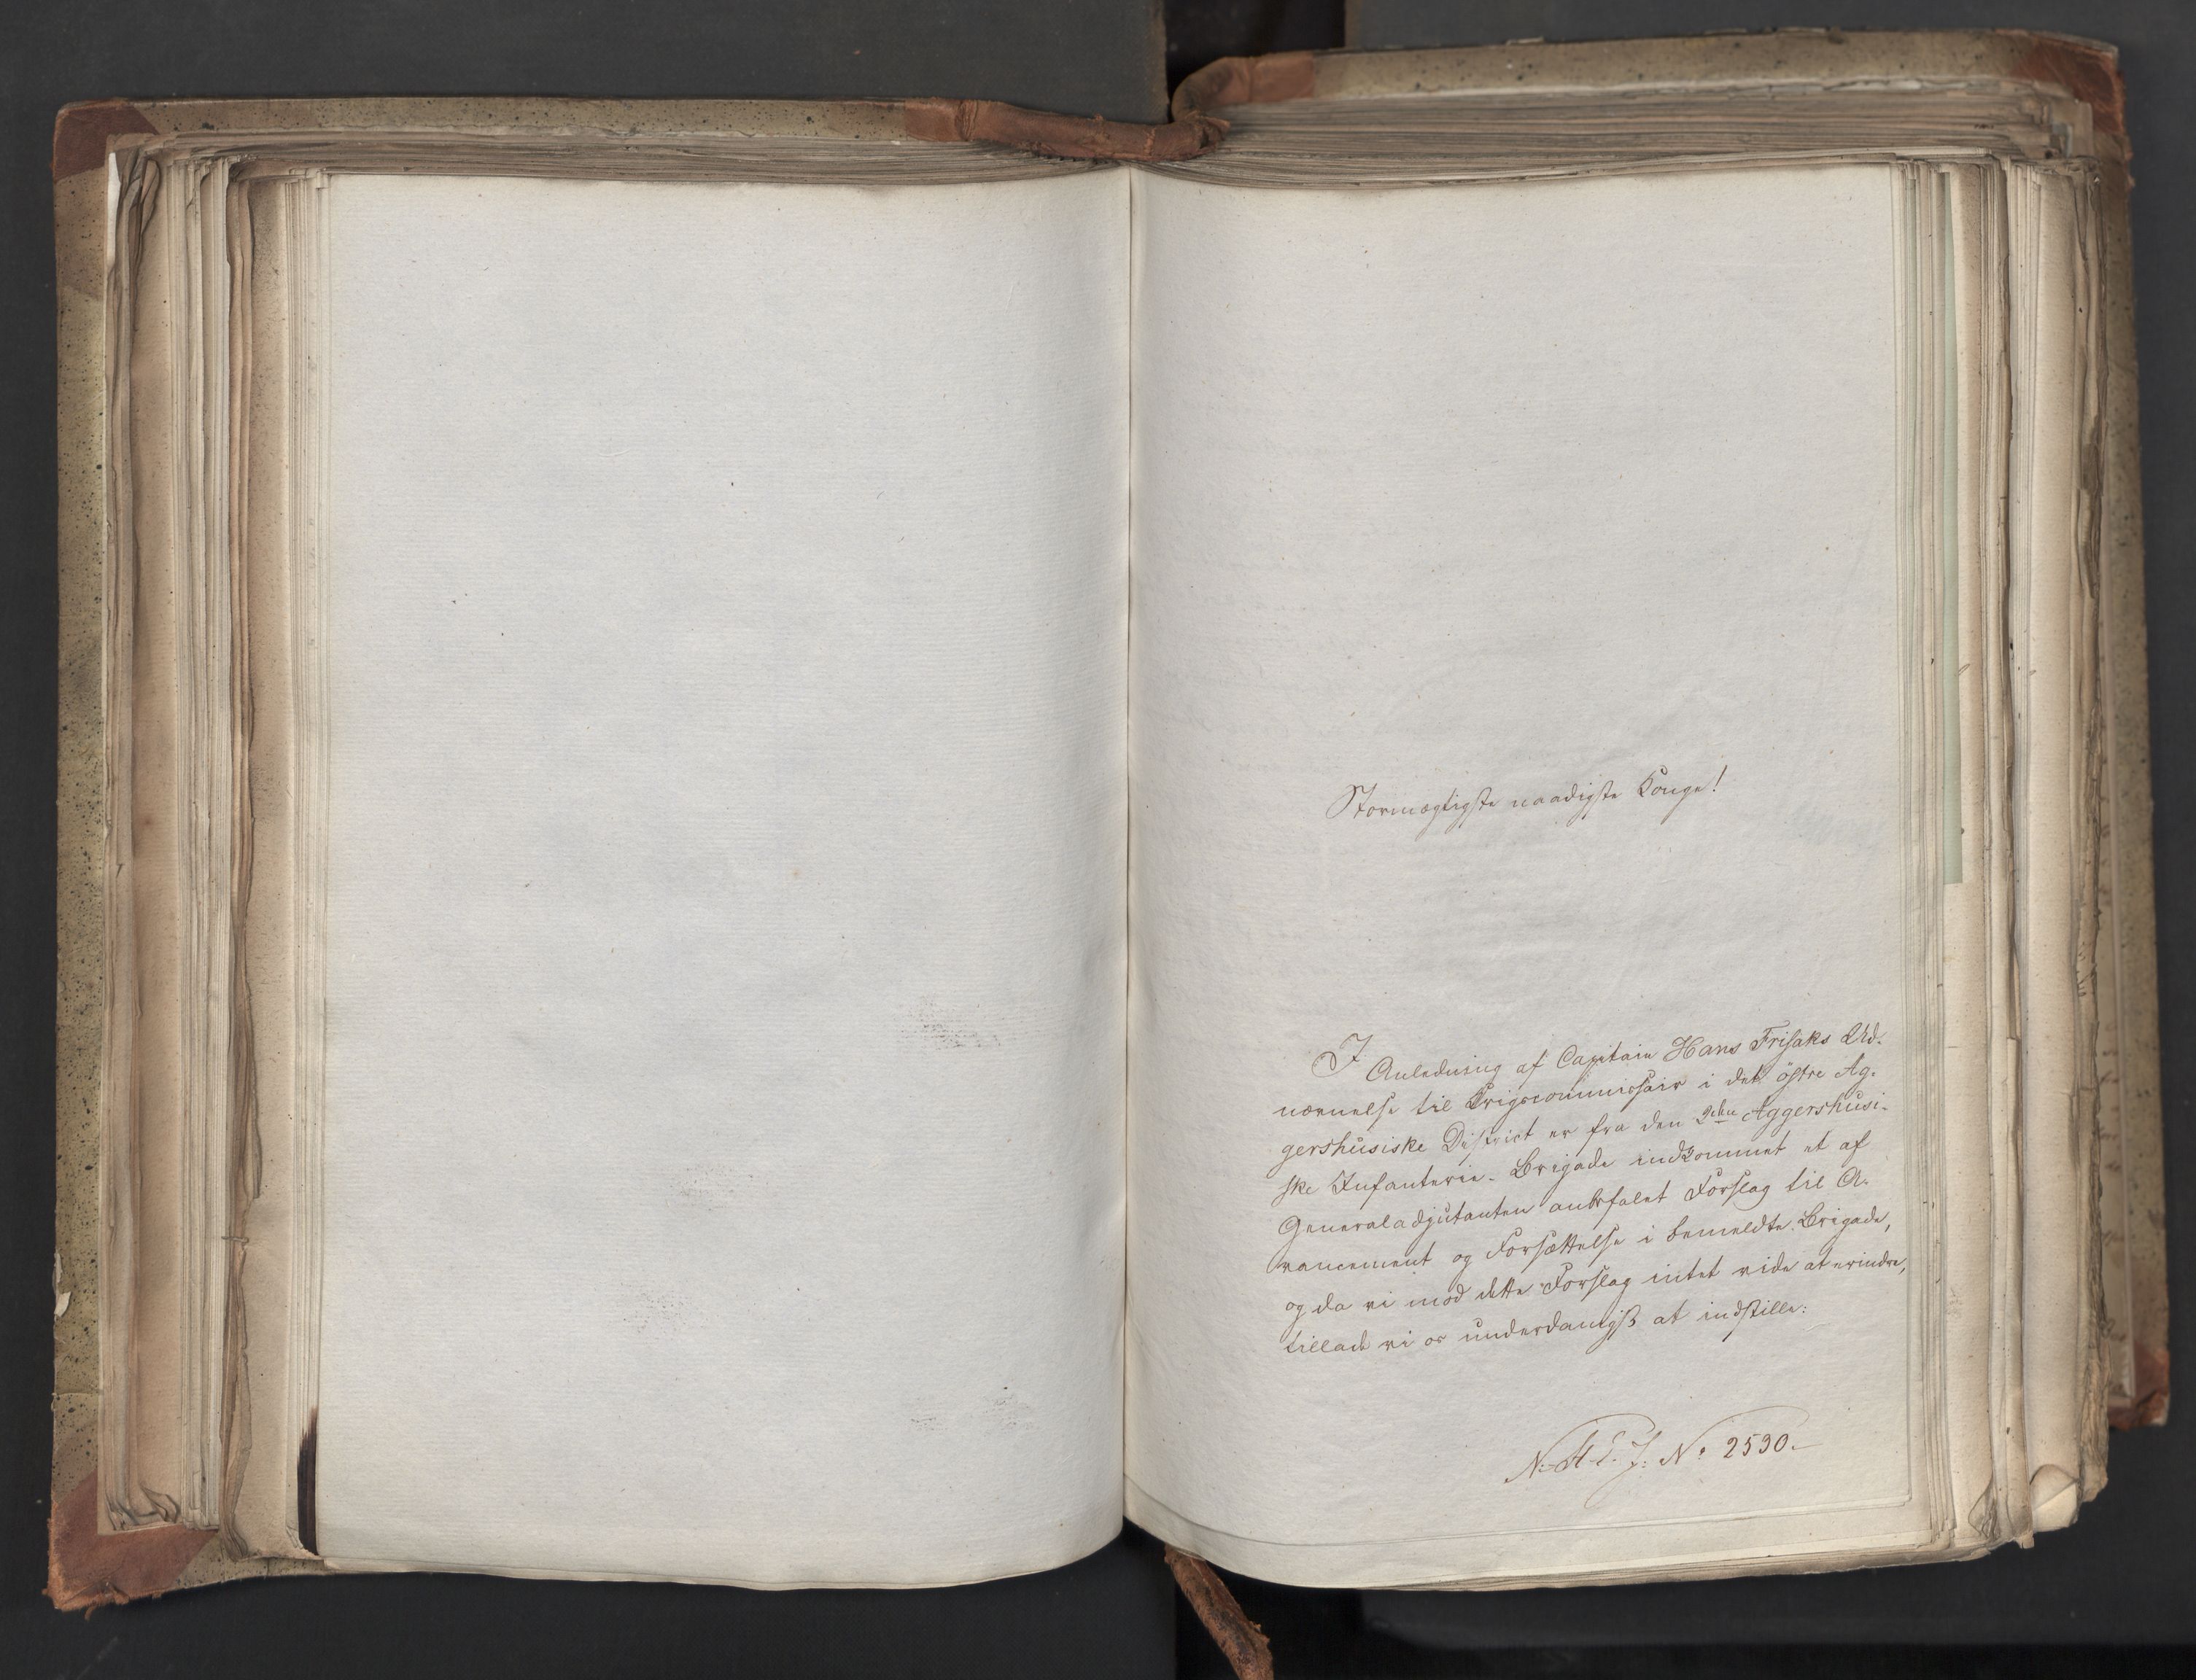 Stormægtigste naadigste Konge!
I Anledning af Capitain Hans Frisaks Ud-
nævnelse til Krigscommissair i det östre Ag-
gershusiske District er fra den 2den Aggershusi-
ske Infanterie-Brigade indkommet et af
Generaladjutanten anbefalet Forslag til A-
vancement og Forsættelse i bemeldte Brigade,
og da vi mod dette Forslag intet vide at erindre,
tillade vi os underdanigst at indstille:
No 2530.